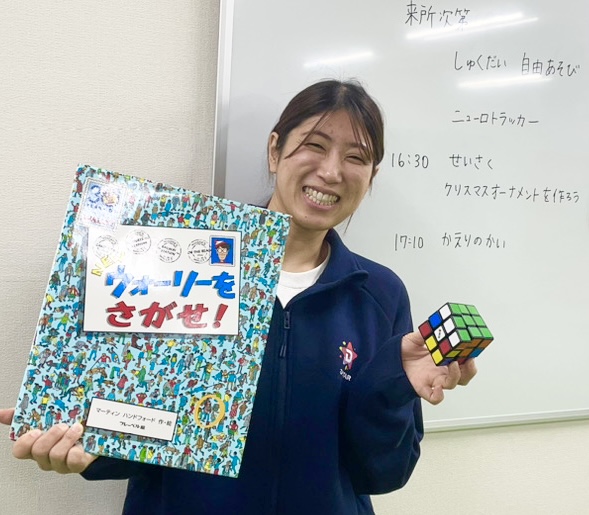 来所次第
しゅくだい 自由あそび
ニューロトラッカー
16:30 せいさく
クリスマスオーナメントを作ろう
17:10 かえりのかい
ウォーリーを
さがせ!
マーティン ハンドフォード 作・絵
フレーベル館